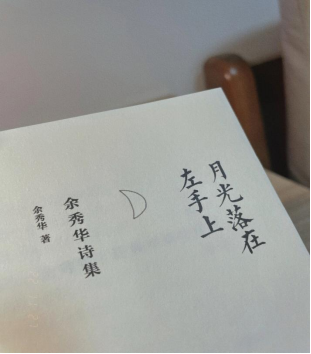 月光落在
左手上
余秀华诗集
余秀华 著